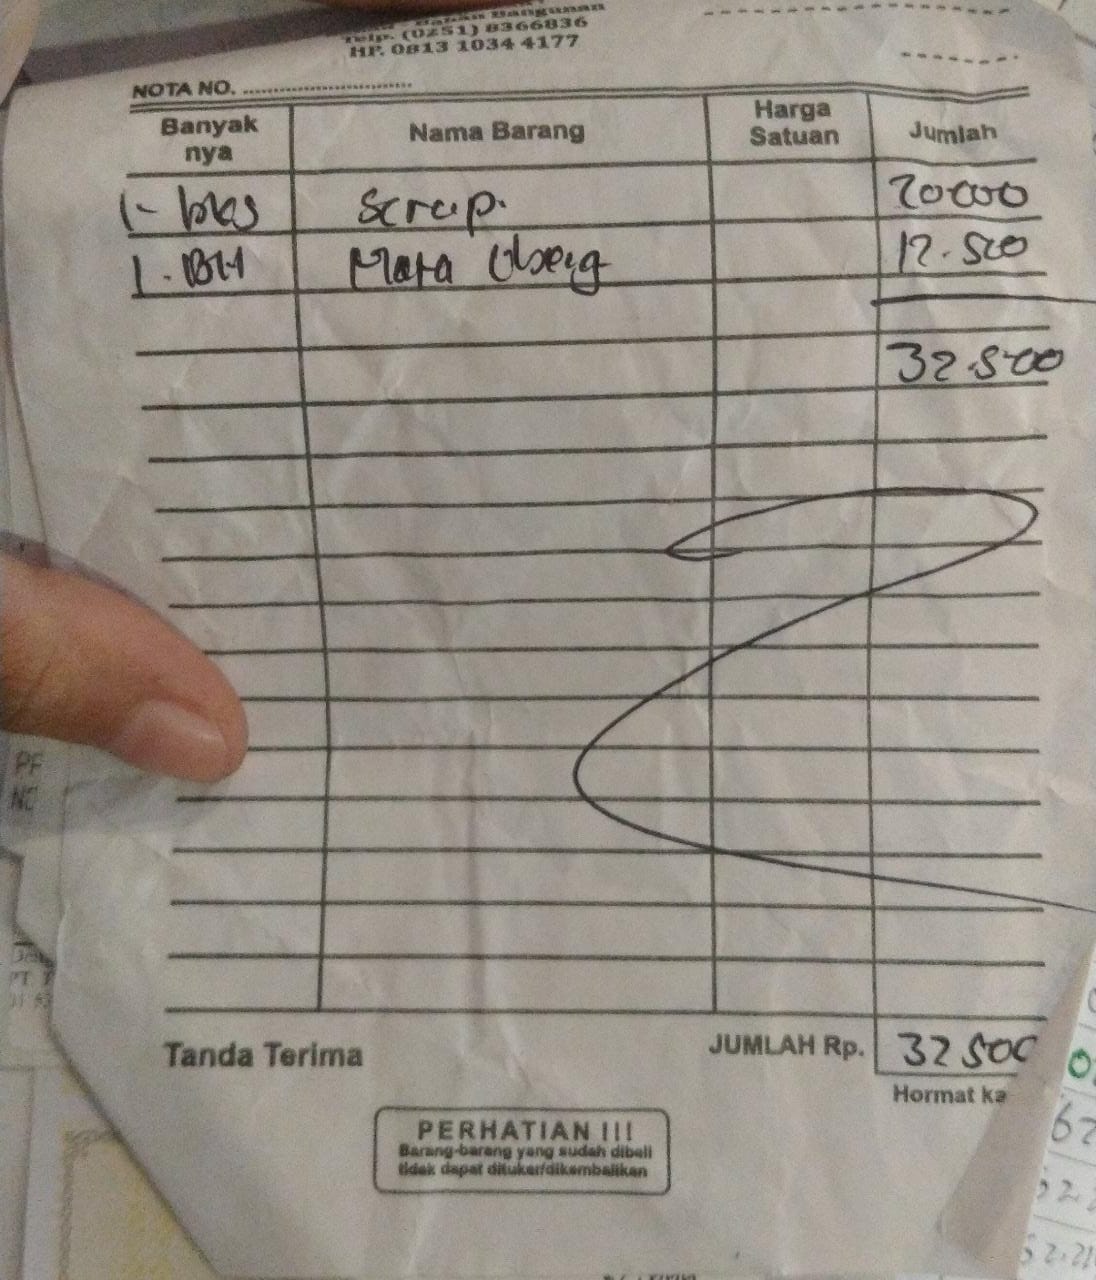 Bahan Bangunan
Telp. (0251) 8366836
HP. 0813 1034 4177
NOTA NO.
Banyak nya Nama Barang Harga Satuan Jumlah
1- bks Scrup. 20000
1. BH Mata Obeng 12.500
32.500
Tanda Terima JUMLAH Rp. 32500
Hormat ka
PERHATIAN !!!
Barang-barang yang sudah dibeli
tidak dapat ditukar/dikembalikan